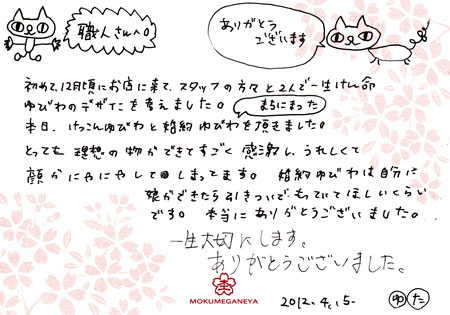 職人さんへ。
ありがとう
ございます
初めて、12月頃にお店に来て、スタッフの方々と2人で一生けん命
ゆびわのデザインを考えました。
まちにまった
本日、けっこんゆびわと婚約ゆびわを頂きました。
とっても理想の物ができてすごく感激し、うれしくて
顔がにやにやしてしまってます。婚約ゆびわは自分に
娘ができたら引きついでもっていてほしいくらい
です。本当にありがとうございました。
一生大切にします。
ありがとうございました。
MOKUMEGANEYA
2012.4.5-
ゆ た